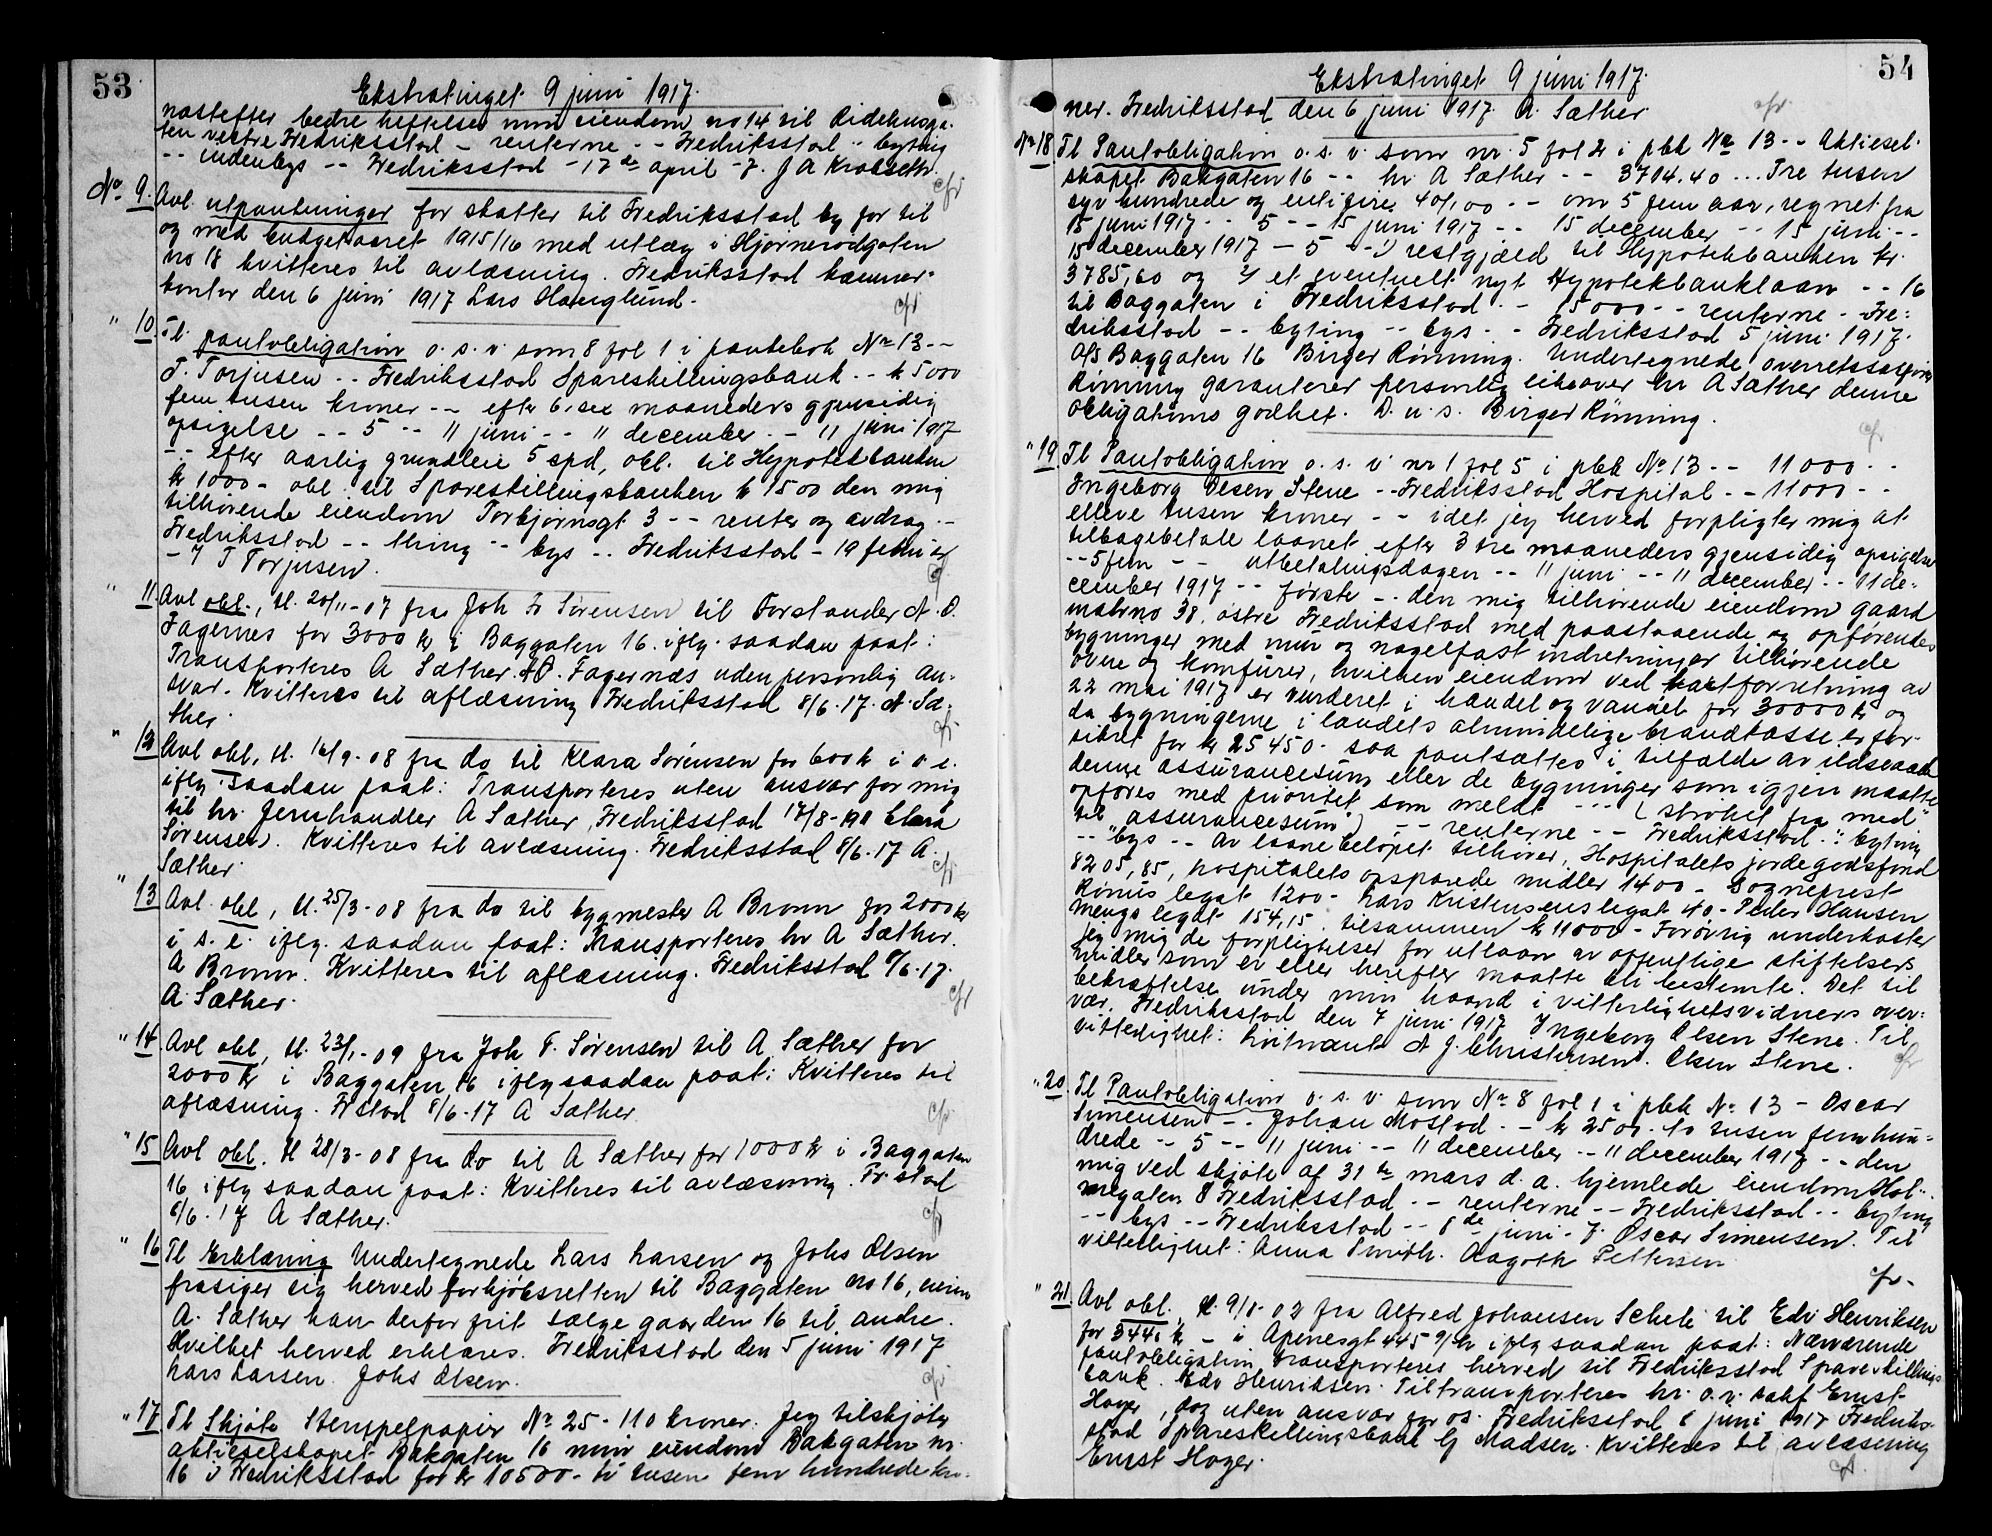 53
Ekstratinget 9 juni 1917.
næstefter bedre heftelser min eiendom no 14 til Ridehusga-
ten vestre Fredriksstad - renterne -- Fredriksstad -- byting
-- indenbys -- Fredriksstad - 17de april - 7. J A Krabseth.
No. 9. Avl. utpantninger for skatter til Fredriksstad by for til
og med budgetaaret 1915/16 med utlæg i Hjørnerødgaten
no 18 kvitteres til avlæsning. Fredriksstad kæmner-
kontor den 6 juni 1917 Lars Hauglund.
" 10 Tl pantobligation o. s. v. som 8 fol 1 i pantebok No 13 --
T. Torjusen -- Fredriksstad Spareskillingsbank -- kr 5000
fem tusen kroner -- efter 6, sex maaneders gjensidig
opsigelse -- 5 -- 11 juni -- 11 december -- 11 juni 1917
-- efter aarlig grundleie 5 spd, obl. til Hypotekbanken
kr 1000 - obl. til Spareskillingsbanken kr 1500 den mig
tilhørende eiendom Torbjørnsgt 3 -- renter og avdrag --
Fredriksstad -- thing -- bys -- Fredriksstad - 19 februar
- 7 T Torjusen.
" 11 Avl obl., tl. 20/11-07 fra Joh Fr Sørensen til Forstander A. O.
Fagernes for 3000 kr i Baggaten 16. iflg. saadan paat:
Transporteres A Sæther. A O. Fagernæs uden personlig an-
svar. Kvitteres til aflæsning Fredriksstad 8/6. 17. A. Sæ-
ther.
" 12 Avl obl, tl. 16/9-08 fra do til Klara Sørensen for 600 kr i s. e.
iflg saadan paat: Transporteres uten ansvar for mig
til hr. Jernhandler A Sæther, Fredriksstad 17/8-1911 Clara
Sørensen. Kvitteres til avlæsning. Fredriksstad 8/6-17 A.
Sæther.
" 13 Avl. obl, tl. 25/3-08 fra do til bygmester A Bronn for 2000 kr
i s. e. iflg. saadan paat: Transporteres hr A Sæther.
A Bronn. Kvitteres til aflæsning. Fredriksstad 8/6. 17.
A. Sæther.
" 14 Avl obl, tl. 23/1-09 fra Joh F. Sørensen til A Sæther for
2000 kr i Baggaten 16 iflg saadan paat: Kvitteres til
aflæsning. Fr stad 8/6-17 A Sæther.
" 15 Avl obl. tl 28/3-08 fra do til A Sæther for 1000 kr i Baggaten
16 iflg saadan paat: Kvitteres til avlæsning. Fr stad
8/6. 17 A Sæther.
" 16 Tl Erklæring Undertegnede Lars Larsen og Johs Olsen
frasiger sig herved forkjøbsretten til Baggaten no 16,
A. Sæther kan derfor frit sælge gaarden 16 til andre.
Hvilket herved erklæres. Fredriksstad den 5 juni 1917
Lars Larsen Johs Olsen.
" 17 Tl Skjøte Stempelpapir No 25 - 110 kroner. Jeg tilskjøter
aktieselskapet Bakgaten 16 min eiendom Bakgaten nr.
16 i Fredriksstad for kr 10500 - ti tusen fem hundrede kro-
54
Ekstratinget 9 juni 1917.
ner. Fredriksstad den 6 juni 1917 A. Sæther
No 18 Tl Pantobligation o. s. v. som nr. 5 fol 2 i pbk No 13 -- Aktiesel-
skapet Bakgaten 16 -- hr. A Sæther -- 3704.40 ... Tre tusen
syv hundrede og enligfire 40/100 -- om 5 fem aar, regnet fra
15 juni 1917 -- 5 -- 15 juni 1917 -- 15 december -- 15 juni --
15 december 1917 - 5 -- 1) restgjæld til Hypotekbanken kr.
3785,60 og 2) et eventuelt nyt Hypotekbanklaan -- 16
til Baggaten i Fredriksstad -- 15000 -- renterne - Fre-
driksstad -- byting -- bys -- Fredriksstad 5 juni 1917.
A/S Baggaten 16 Birger Rønning. Undertegnede overretssakfører
Rønning garanterer personlig likeover hr A Sæther denne
obligations godhet. D. u. s. Birger Rønning.
" 19 Tl Pantobligation o. s. v. nr 1 fol 5 i pbk No 13 -- 11000 --
Ingeborg Olsen Stene -- Fredriksstad Hospital -- 11000 --
elleve tusen kroner -- idet jeg herved forpligter mig at
tilbagebetale laanet efter 3 tre maaneders gjensidig opsigelse
-- 5 fem -- utbetalingsdagen -- 11 juni -- 11 december -- 11 de-
cember 1917 -- første -- den mig tilhørende eiendom gaard
matrno 38, østre Fredriksstad med paastaaende og opførendes
bygninger med mur og nagelfast indretninger tilhørende
ovne og komfurer, hvilken eiendom ved takstforretning av
22 mai 1917 er vurderet i handel og vandel for 30000 kr og
da bygningerne i landets almindelige brandkasse er for-
sikret for kr 25450 - saa pantsættes i tilfælde av ildsvaade
denne assurancesum eller de bygninger som igjen maatte
opføres med prioritet som meldt --- (strøket fra "med"
til "assurancesum") -- renterne -- Fredriksstad -- byting
-- bys -- Av laanebeløpet tilhører, Hospitalets jordegodsfond
8205,85, hospitalets opsparede midler 1400 - Sogneprest
Rønus legat 1200 - Lars Kristensens legat 40 - Peder Hansen
Mengs legat 154,15 tilsammen kr 11000 - Forøvrig underkaster
jeg mig de forpligtelser for utlaan av offentlige stiftelsers
midler som er eller herefter maatte bli bestemte. Det til
bekræftelse under min haand i vitterlighetsvidners over-
vær. Fredriksstad den 7 juni 1917 Ingeborg Olsen Stene. Til
vitterlighet: Løitnant A J. Christensen. Olsen Stene.
" 20. Tl Pantobligation o. s. v. som No 8 fol 1 i pbk No 13 - Oscar
Simensen -- Johan Mostad -- kr 2500. to tusen fem hun-
drede -- 5 -- 11 juni -- 11 december -- 11 december 1917 -- den
mig ved skjøte af 31te mars d. a. hjemlede eiendom Hol-
megaten 8 Fredriksstad -- renterne -- Fredriksstad -- byting
-- bys -- Fredriksstad -- 8de juni - 7. Oscar Simensen. Til
vitterlighet: Anna Smith. Aagoth Pettersen.
" 21 Avl obl. tl. 9/8-02 fra Alfred Johansen Schele til Edv Henriksen
for 3440 kr - i Apenesgt 445 iflg saadan paat: Nærværende
pantobligation transporteres herved til Fredriksstad Spareskillings
bank. Edv Henriksen. Tiltransporteres hr. o. r. sakf Ernst
Høyer, dog uten ansvar for os. Fredriksstad 8 juni 1917 Fredriks-
stad Spareskillingsbank Madsen. Kvitteres til avlæsning
Ernst Høyer.